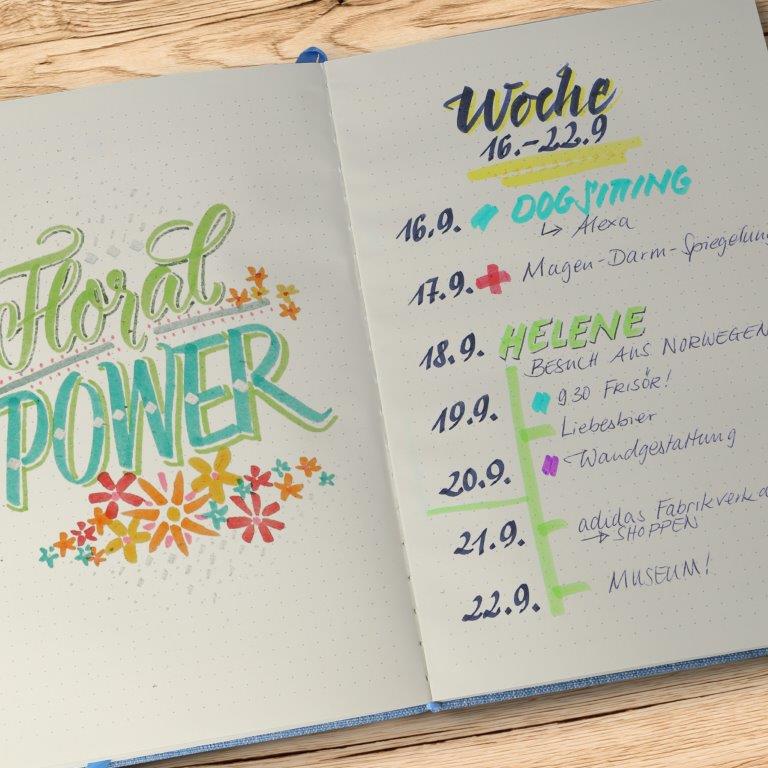 Floral
POWER
Woche
16.-22.9
16.9. DOGSITTING
↳ Alexa
17.9. Magen-Darm-Spiegelung
18.9. HELENE
BESUCH AUS NORWEGEN
930 FRISÖR!
19.9. Liebesbier
20.9. Wandgestaltung
21.9. adidas Fabrikverka
→ SHOPPEN
22.9. MUSEUM!